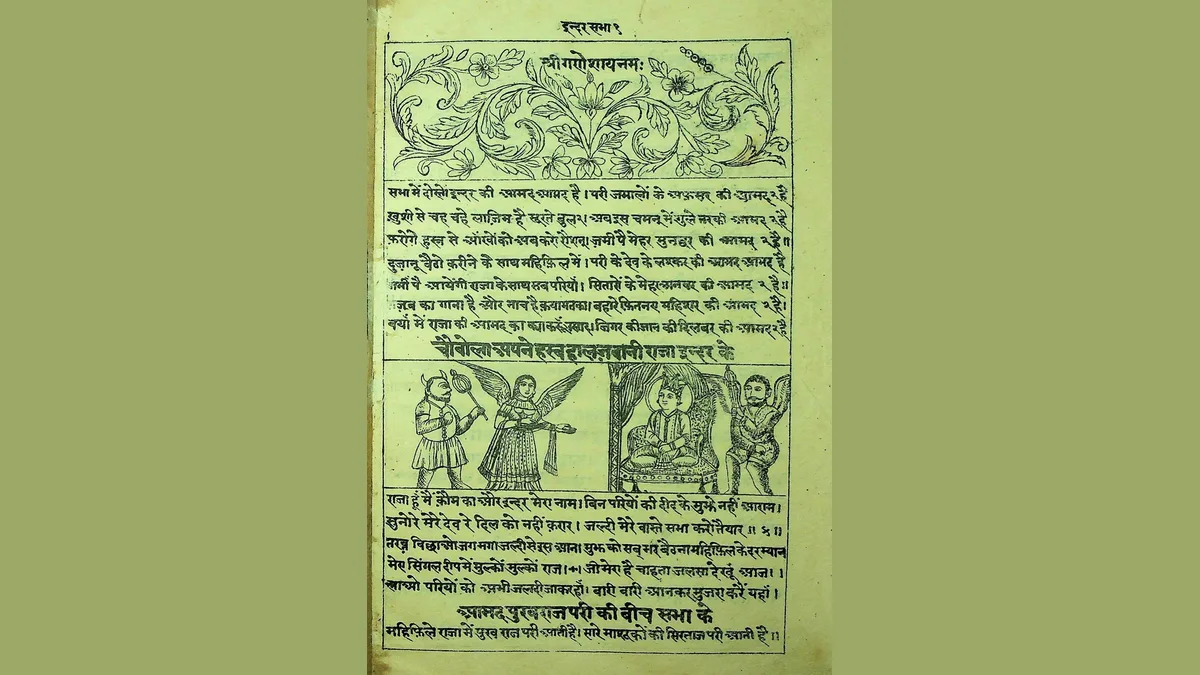 इन्दर सभा १
श्रीगणेशायनमः
सभा में दोस्तो इन्दर की आमद आमद है। परी जमालों के अफ़सर की आमद २ है
ख़ुशी से चह चहे लाज़िम है सूरते बुल२। अब इस चमन में गुले तर की आमद २ है
फ़रोगे हुस्न से आंखों को अब करो रोशन। ज़मीं पै मेहर मुनव्वर की आमद २ है॥
दुज़ानू बैठो क़रीने के साथ महिफ़िल में। परी के देव के लश्कर की आमद आमद है
ज़मीं पै आयेंगी राजा के साथ सब परियाँ। सितारों के मेह अनवर की आमद २ है॥
ग़ज़ब का गाना है और नाच है क़यामत का। बहारे फ़ितनए महिशर की आमद २ है।
बयाँ में राजा की आमद का क्या करूँ उस्ताद। जिगर की जान की दिलबर की आमद २ है
चौबोला अपने हस्ब हाल ज़बानी राजा इन्दर के
राजा हूँ मैं क़ौम का और इन्दर मेरा नाम। बिन परियों की दीद के मुझे नहीं आराम।
सुनो रे मेरे देव रे दिल को नहीं क़रार। जल्दी मेरे वास्ते सभा करो तैयार॥
तख़्त बिछाओ जगमगा जल्दी से इस आन। मुझ को सब भर बैठना महिफ़िल के दरम्यान
मेरा सिंगल दीप में मुल्कों मुल्कों राज।+। जी मेरा है चाहता जलसा देखूं आज।।
लाओ परियों को अभी जलदी जाकर हाँ। बारी बारी आनकर मुजरा करें यहाँ।
आमद पुखराज परी की बीच सभा के
महिफ़िले राजा में पुखराज परी आती है। सारे माशूकों की सिरताज परी आती है॥